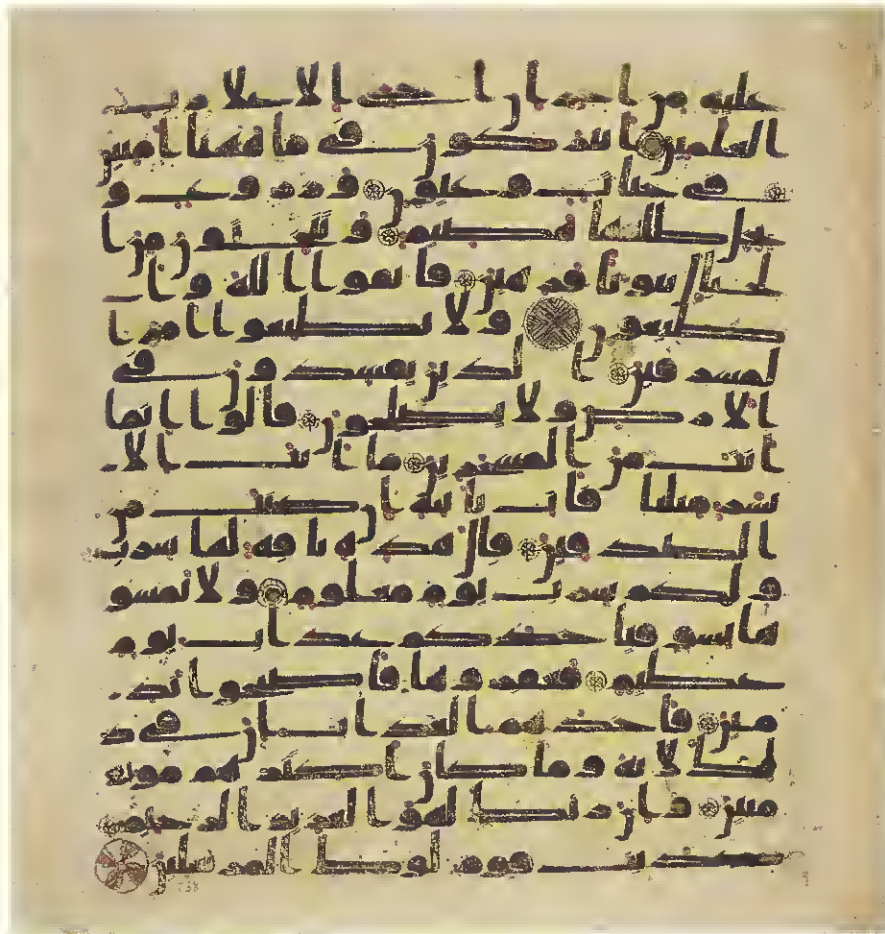 عليه من اجر ان اجري الا على رب
العلمين اتتركون في ما ههنا امنين
في جنات وعيون وزروع و
نخل طلعها هضيم وتنحتون من ا
لجبال بيوتا فرهين فاتقوا الله وا
طيعون ولا تطيعوا امر ا
لمسرفين الذين يفسدون في
الارض ولا يصلحون قالوا انما
انت من المسحرين ما انت الا
بشر مثلنا فات باية ان كنت من
الصدقين قال هذه ناقة لها شرب
ولكم شرب يوم معلوم ولا تمسو
ها بسو فياخذكم عذاب يوم
عظيم فعقروها فاصبحوا ند
مين فاخذهم العذاب ان في ذ
لك لاية وما كان اكثرهم مو
منين وان ربك لهو العزيز الرحيم
كذبت قوم لوط المرسلين